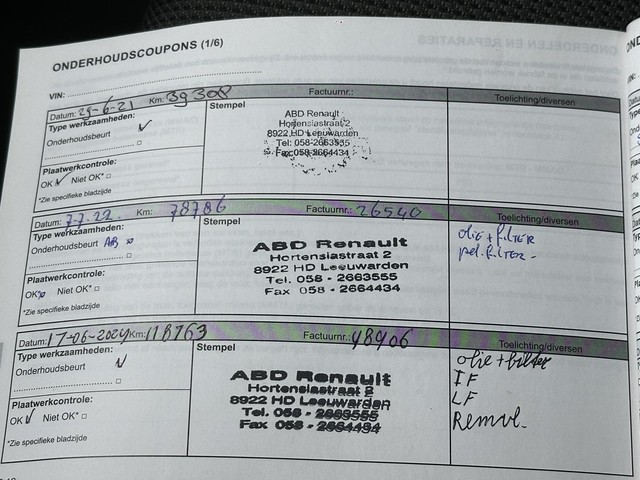 ONDERHOUDSCOUPONS (1/6)
VIN:
Datum: 29-6-21 Km: 39308 Factuurnr.: Toelichting/diversen
Type werkzaamheden:
Onderhoudsbeurt
Plaatwerkcontrole:
OK Niet OK*
*Zie specifieke bladzijde
Stempel
ABD Renault
Hortensiastraat 2
8922 HD Leeuwarden
Tel: 058-2663555
Fax 058-2664434
Datum: 7-7-22 Km: 78786 Factuurnr.: 26540 Toelichting/diversen
Type werkzaamheden:
Onderhoudsbeurt AB
Plaatwerkcontrole:
OK* Niet OK*
*Zie specifieke bladzijde
Stempel
ABD Renault
Hortensiastraat 2
8922 HD Leeuwarden
Tel. 058 - 2663555
Fax 058 - 2664434
olie + FILTER
pol. FILTER -
Datum: 17-06-2024 Km: 118763 Factuurnr.: 48906 Toelichting/diversen
Type werkzaamheden:
Onderhoudsbeurt
Plaatwerkcontrole:
OK Niet OK*
*Zie specifieke bladzijde
Stempel
ABD Renault
Hortensiastraat 2
8922 HD Leeuwarden
Tel. 058 - 2663555
Fax 058 - 2664434
olie + filter
IF
LF
Remvl.